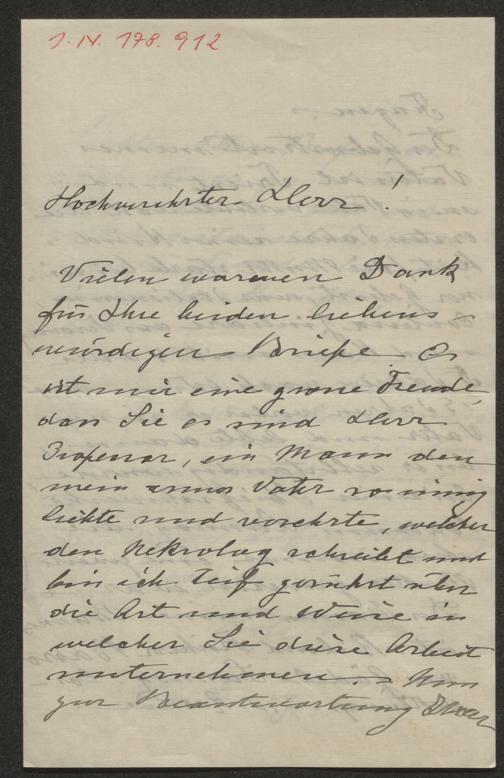 J. N. 178.912
Hochverehrter Herr!
Vielen warmen Dank
für Ihre beiden liebens
würdigen Briefe Es
ist mir eine grosse Freude,
dass Sie es sind Herr
Professor, ein Mann den
mein armer Vater so innig
liebte und verehrte, welcher
den Nekrolog schreibt und
bin ich tief gerührt über
die Art und Weise in
welcher Sie diese Arbeit
unternehmen. Nun
zur Beantwortung Ihrer